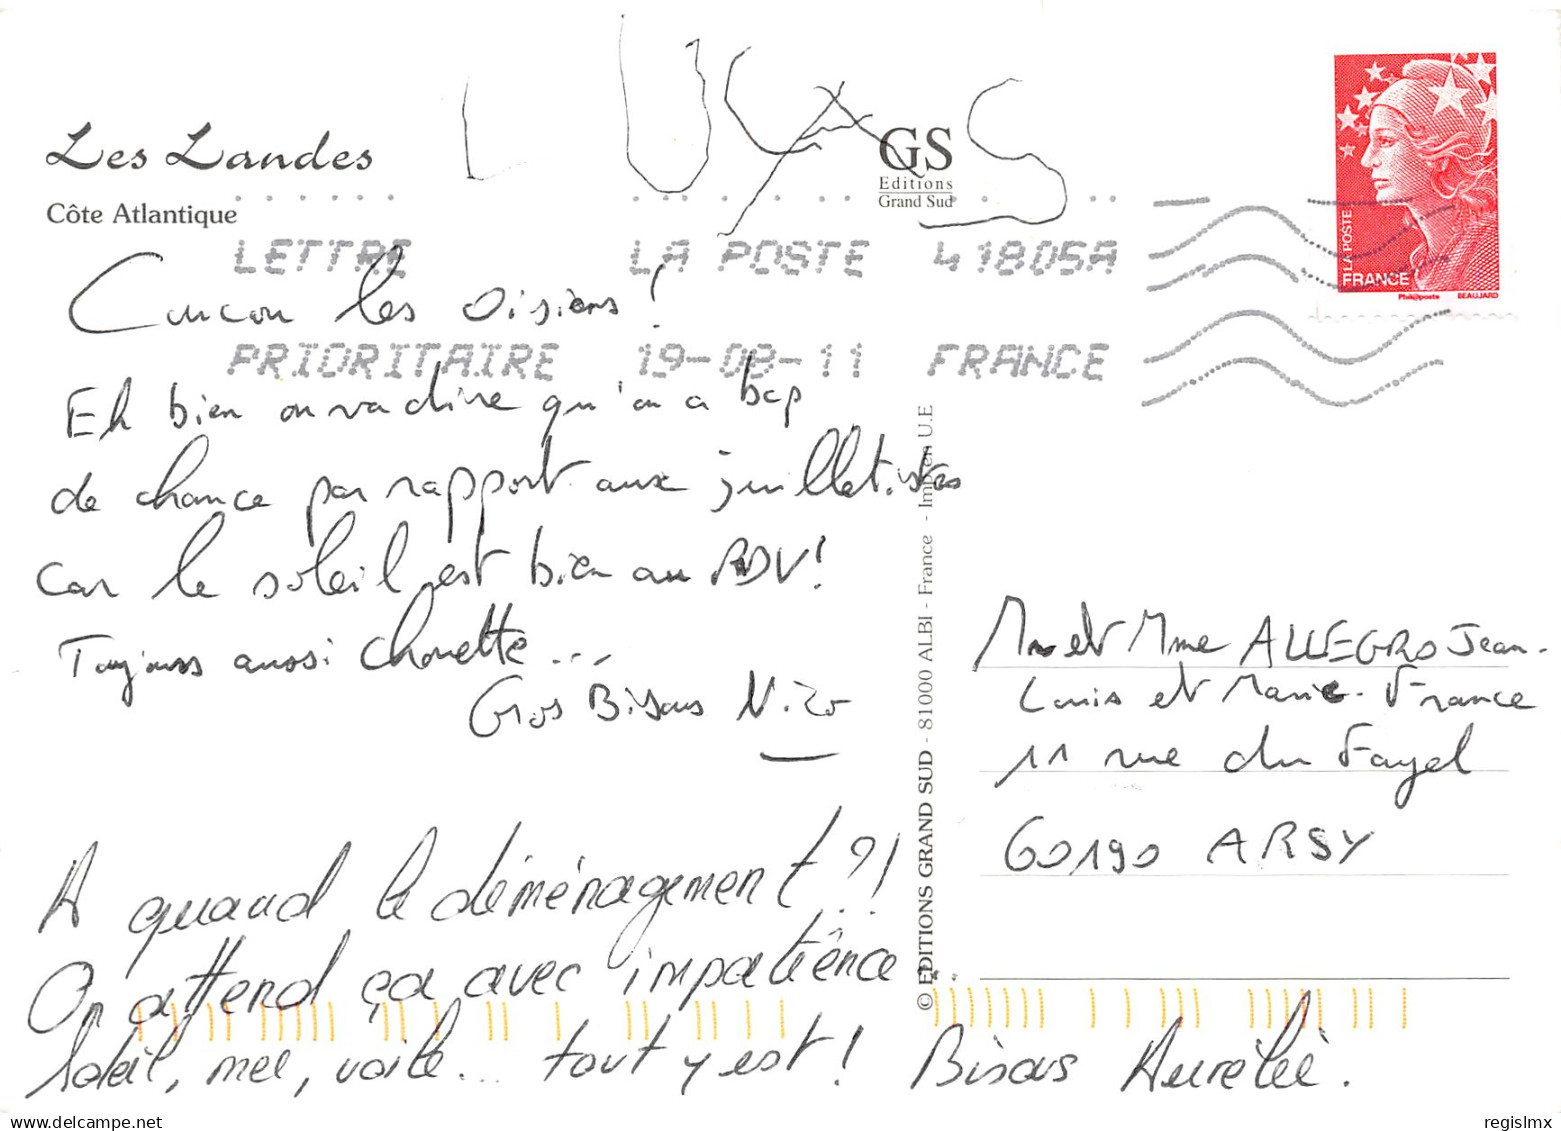 LUCAS
Les Landes
Côte Atlantique
GS
Editions
Grand Sud
LETTRE LA POSTE 41805A
PRIORITAIRE 19-08-11 FRANCE
LA POSTE
FRANCE
Phil@poste BEAUJARD
Coucou les Oisiens !
Eh bien on va dire qu'on a bcp
de chance par rapport aux juilletistes
car le soleil est bien au RDV !
Toujours aussi chouette ...
Gros Bisous Nizo
A quand le déménagement ?!
On attend ça avec impatiênce ...
Soleil, mer, voile ... tout y est ! Bisous Aurélie.
© EDITIONS GRAND SUD - 81000 ALBI - France - Imp. en U.E
Mr et Mme ALLEGRO Jean-
Louis et Marie-France
11 rue du Fayel
60190 ARSY
regislmx
delcampe.net